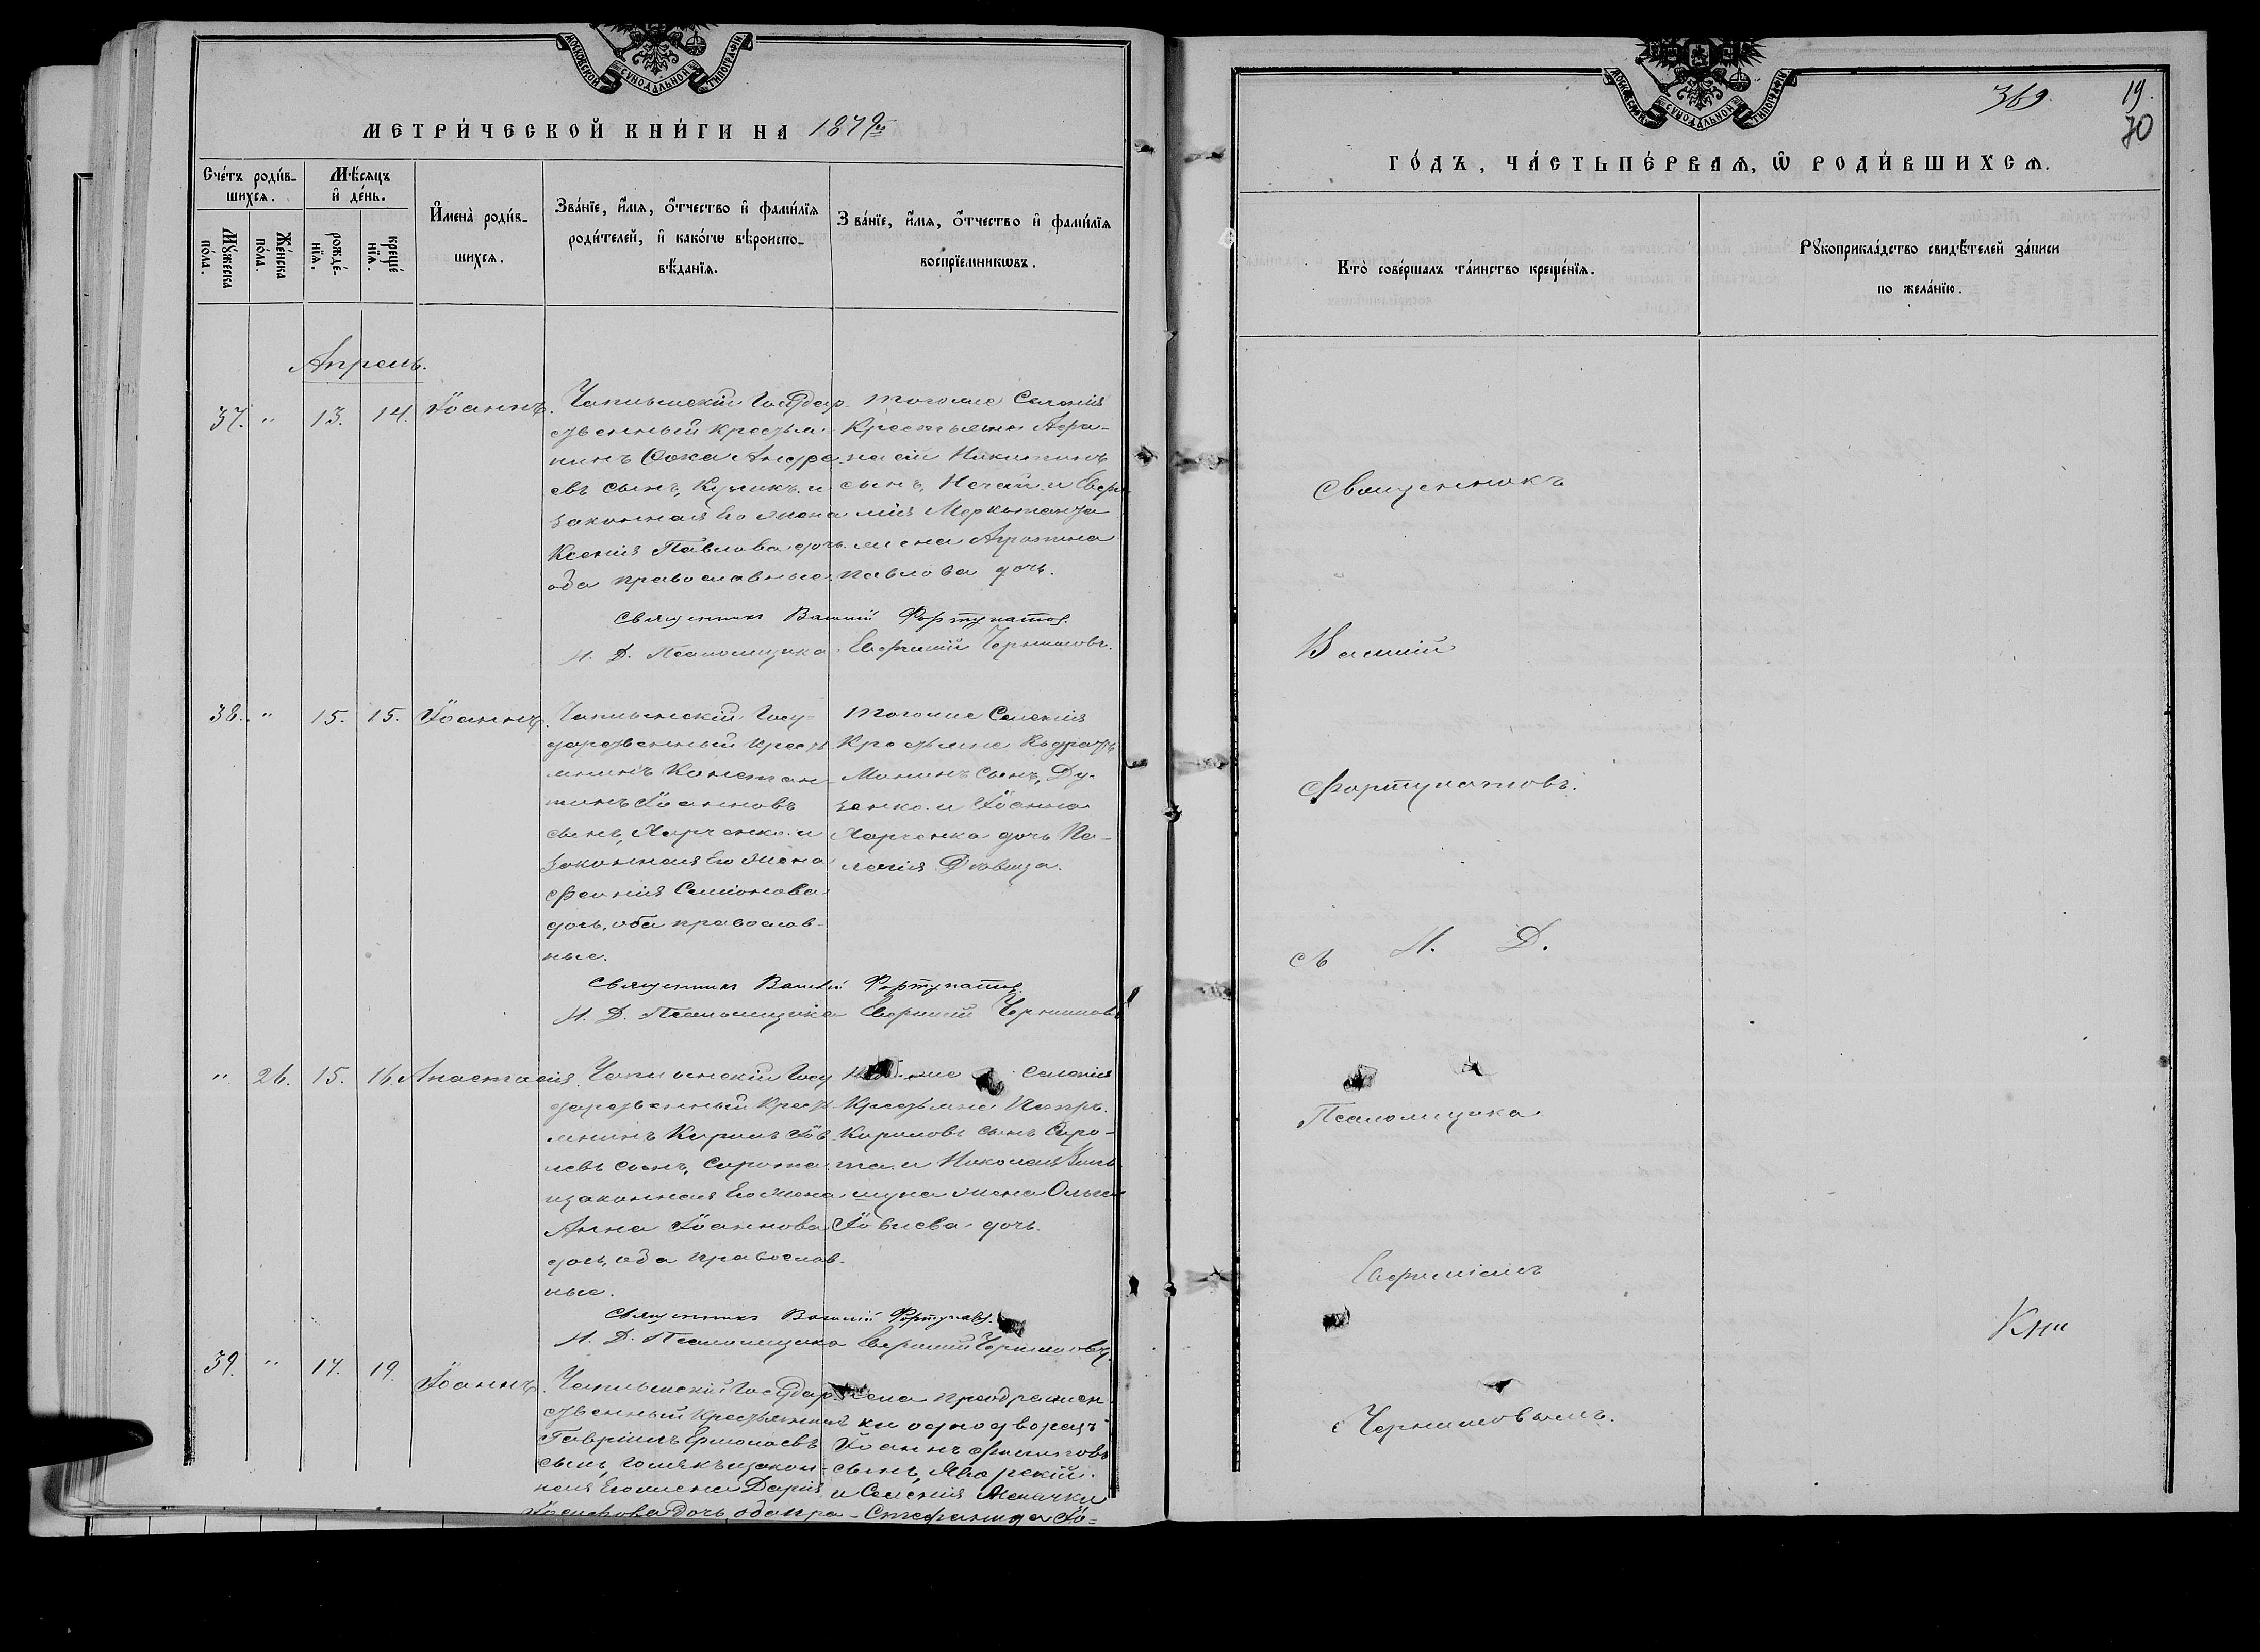 МОСКОВСКОЙ СѴНОДАЛЬНОЙ ТИПОГРАФІИ
МЕТРИ́ЧЕСКОЙ КНИ́ГИ НА 1879й
Сче́тъ роди́в-
шихсѧ.
Мѣ́сѧцъ
и҆ де́нь.
Мꙋ́жеска
по́ла.
Же́нска
по́ла.
рожде́-
нїѧ.
креще́
нїѧ.
И҆мена̀ роди́в-
шихсѧ.
Зва́нїе, и҆́мѧ, ѻ҆́тчество и҆ фами́лїѧ
роди́телей, и҆ како́гѡ вѣроиспо-
вѣ́данїѧ.
Зва́нїе, и҆́мѧ, ѻ҆́тчество и҆ фами́лїѧ
воспрїемникѡвъ.
Апрель.
37. " 13. 14. Іоаннъ.
Чаплынскій Государ-
ственный крестья-
нинъ Сока Андре-
евъ сынъ, Куликъ и
законная Его жена
Ксенія Павлова дочь
оба православные
тогоже Селенія
Крестьяне Афа-
насій Никитинъ
сынъ, Нечай и Евфи
мія жена Агрипина
Павлова дочь.
Священникъ Василій Фортунатов.
И. Д. Псаломщика Евфимій Чернышовъ.
38. " 15. 15. Іоаннъ.
Чаплынскій Госу-
дарственный кресть
янинъ Констан-
тинъ Іоанновъ
сынъ, Харченко и
законная Его жена
Феснія Симіонова
дочь, оба православ-
ные.
тогоже Селенія
Крестьяне Кодратъ
Мининъ сынъ, Ду-
зенко и Іоанна
Харченка дочь Пе-
лагія Дѣвица.
Священникъ Василій Фортунатов.
И. Д. Псаломщика Евфимій Чернышовъ
" 26. 15. 16. Анастасія.
Чаплынскій Госу
дарственный кресть
янинъ Кирилъ Іов
левъ сынъ, Сирота
и законная Его жена
Анна Іоаннова
дочь, оба православ-
ные.
Селенія
Крестьяне Петръ
Кириловъ сынъ Сиро-
та и Николая
жена Ольга
Іовлева дочь.
Священникъ Василій Фортунатов.
И. Д. Псаломщика Евфимій Чернышовъ.
39. " 17. 19. Іоаннъ.
Чаплынскій Государ-
ственный Крестьянинъ
Гавріилъ Ермолаевъ
сынъ, Голякъ и закон-
ная Его жена Дарія
Іосифова дочь оба пра-
села Преображен
ки однодворецъ
Іоаннъ Филиповъ
сынъ, Яворскій
и Селенія
Стефанида Іо=
МОСКОВСКОЙ СѴНОДАЛЬНОЙ ТИПОГРАФІИ
369.
19.
70
ГО́ДЪ, ЧА́СТЬ ПЕ́РВАѦ, Ѡ҆ РОДИ́ВШИХСѦ.
Кто̀ соверша́лъ та́инство креще́нїѧ.
Рꙋкоприкла́дство свидѣ́телей за́писи
по жела́нїю.
Священникъ
Василій
Фортунатовъ.
съ И. Д.
Псаломщика
Евфиміемъ
Чернышовымъ.
Кни